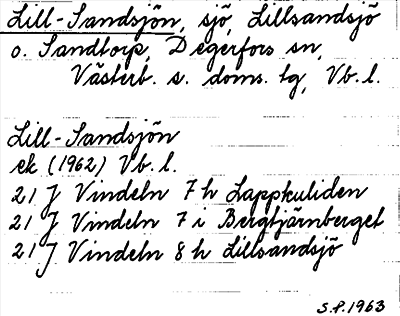 Lill-Sandsjön, sjö, Lillsandsjö
o. Sandtorp, Degerfors sn,
Västerb. s. doms. tg, Vb. l.
Lill-Sandsjön
ek (1962) Vb. l.
21 J Vindeln 7 h Lappkuliden
21 J Vindeln 7 i Bergtjärnberget
21 J Vindeln 8 h Lillsandsjö
S.P. 1963